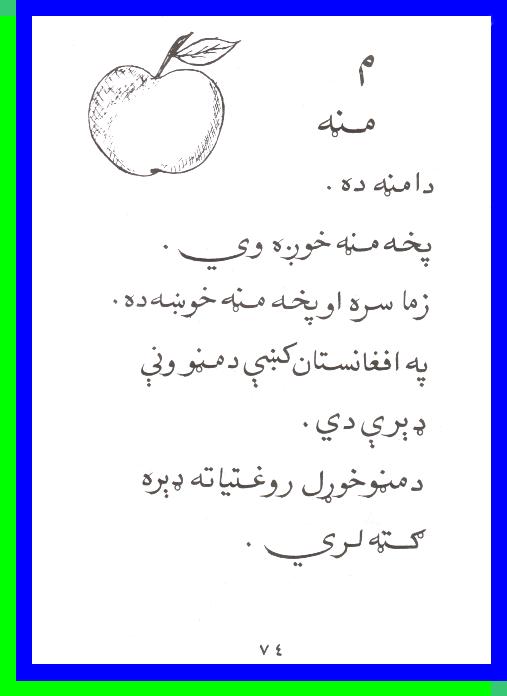 م
مڼه
دا مڼه ده .
پخه مڼه خوږه وي .
زما سره او پخه مڼه خوښه ده .
په افغانستان کښې د مڼو ونې
ډېرې دي .
د مڼو خوړل روغتیا ته ډېره
ګټه لري .
٧٤